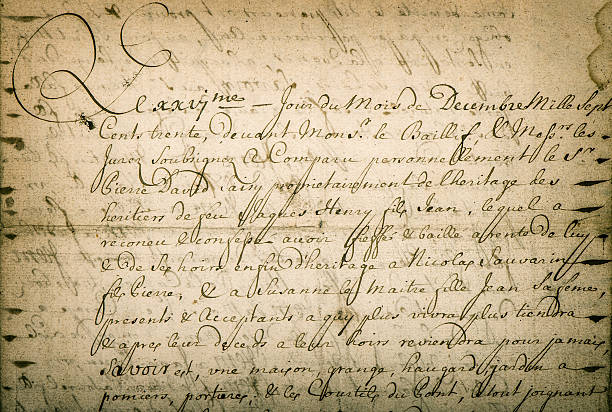 Le xxvjme Jour du Mois de Decembre Mille Sept
Cents trente, devant Monsr. le Baillif, & Messrs. les
Jurez Soubsignez Est Comparu personnellement le Sr.
Pierre David propriétairement de lheritage des
heritiers de feu Jaques Henry fils Jean, lequel a
reconeu & confessé avoir fieffé & baillé a rente de luy
& de ses hoirs enfin d'heritage a Nicolas Sauvarin
fils Pierre, & a Susanne le Maitre fille Jean sa feme,
presents & Acceptants a quy plus vivra plus tiendra
& apres leur deceds a leur hoirs reviendra pour jamais
Savoir est, une maison, grange, haugard, jardin a
pomiers, portieres, & les Courtils du Pont, le tout joignant